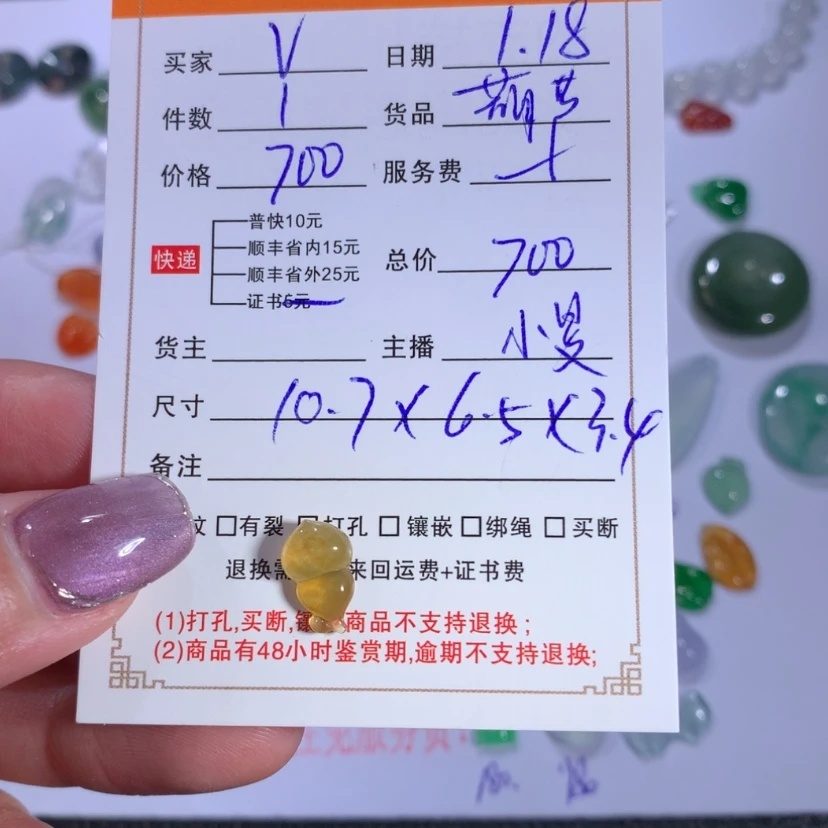 买家 V 日期 1.18
件数 1 货品 葫芦
价格 700 服务费
普快10元
顺丰省内15元
快递 顺丰省外25元 总价 700
证书5元
货主 主播 小昱
尺寸 10.7×6.5×3.4
备注
纹 □有裂 □打孔 □镶嵌 □绑绳 □买断
退换需 来回运费+证书费
(1)打孔,买断,镶 商品不支持退换;
(2)商品有48小时鉴赏期,逾期不支持退换;